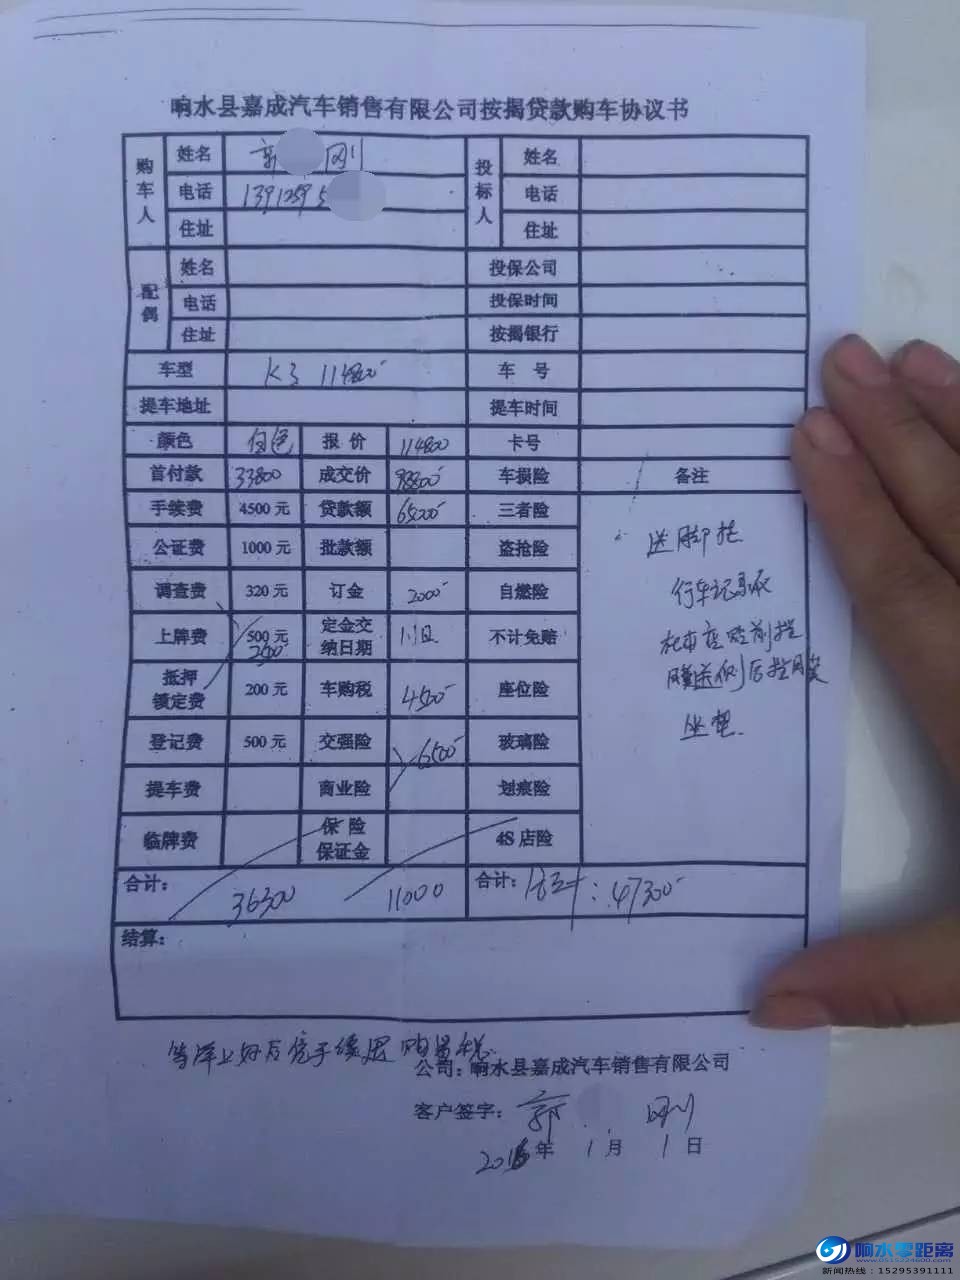 响水县嘉成汽车销售有限公司按揭贷款购车协议书
购车人 姓名 郭 刚 投标人 姓名
电话 13912595 电话
住址 住址
配偶 姓名 投保公司
电话 投保时间
住址 按揭银行
车型 K3 114800 车 号
提车地址 提车时间
颜色 白色 报 价 114800 卡号
首付款 33800 成交价 98800 车损险 备注
手续费 4500 元 贷款额 65000 三者险
公证费 1000 元 批款额 盗抢险 送脚垫
调查费 320 元 订金 2000 自燃险 行车记录仪
上牌费 500 元 2500 定金交纳日期 1.1日 不计免赔 在本店贴前挡
抵押锁定费 200 元 车购税 4500 座位险 赠送侧后挡
登记费 500 元 交强险 6500 玻璃险 坐垫.
提车费 商业险 划痕险
临牌费 保 险保证金 4S 店险
合计: 36300 11000 合计: 47300
结算:
公司: 响水县嘉成汽车销售有限公司
客户签字: 郭 刚
2016 年 1 月 1 日
响水零距离
新闻热线:15295391111